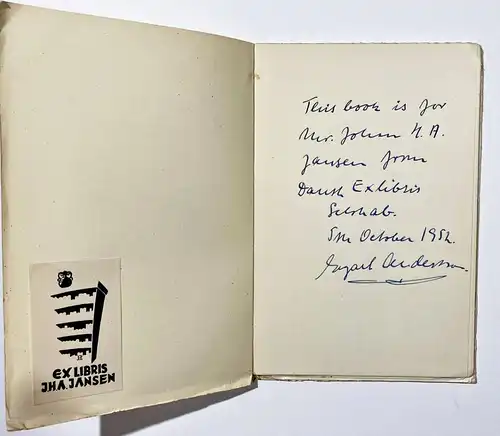 This book is for
Mr. Johan H. A.
Jansen from
Dansk Exlibris
Selskab.
5th October 1952.
Andersen
EX LIBRIS
JH.A. JANSEN